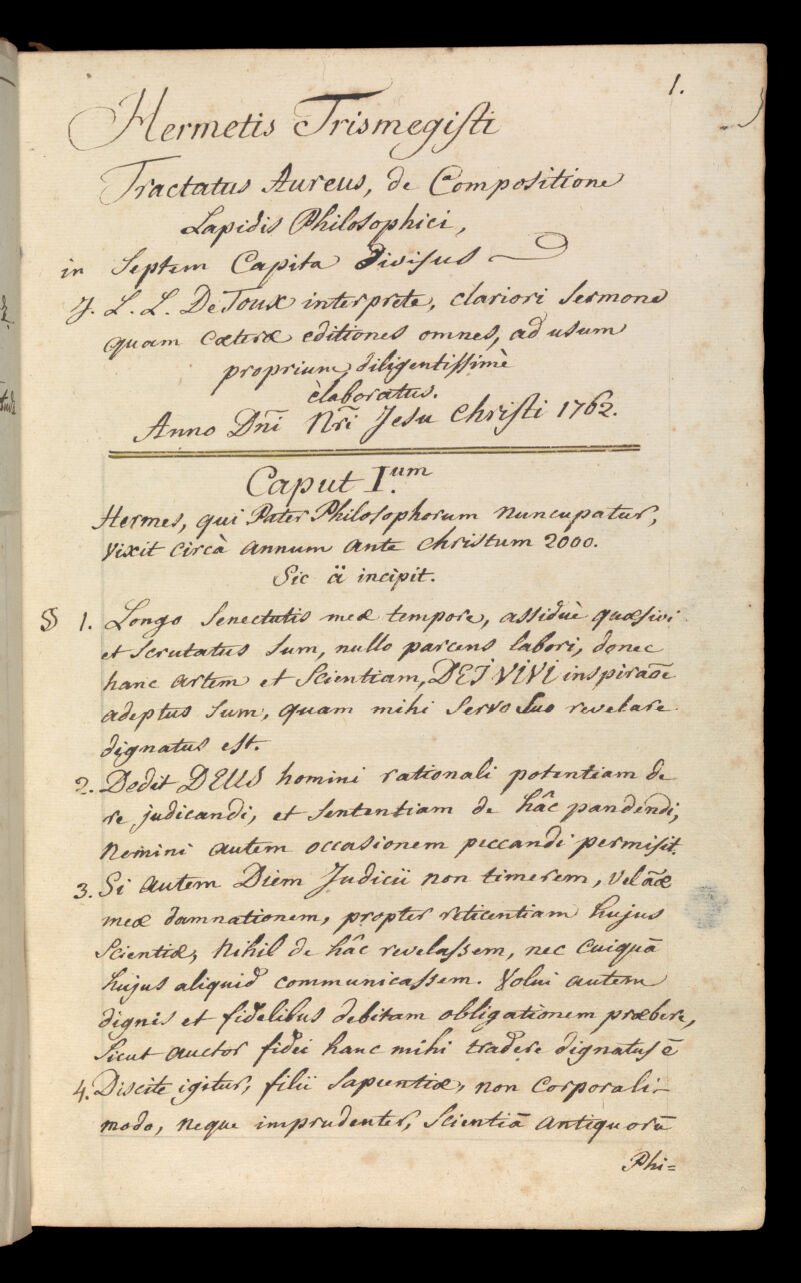 1.
Hermetis Trismegisti
Tractatus Aureus, de Compositione
Lapidis Philosophici,
in Septem Capita divisus
J. L. L. DeToux interprete, clariori Sermone
quam cæteræ editiones omnes, ad usum
proprium, diligentissimè
èlaboratus.
Anno Dñi Nr̃i Jesu Christi 1762.
Caput I.um
Hermes, qui Pater Philosophorum nuncupatur,
vixit circà annum ante Christum 2000.
Sic ä incipit.
§ 1. Longo Senectutis meæ tempore, assiduè quæsivi
et Scrutatus Sum, nullo parcens labori, donec
hanc artem et Scientiam, DEI VIVI inspiraõe
adeptus Sum, quam mihi Servo Suo revelare
dignatus est.
2. Dedit DEUS homini rationali potentiam de
re judicandi, et Sententiam de hâc pandendi,
Nemini autem occasionem peccandi permisit.
3. Si autem Diem Judicii non timerem, vel aãæ
meæ damnationem, propter reticentiam hujus
Scientiæ, Nihil de hâc revelassem, nec cuiquã
hujus aliquid communicassem. Volui autem
dignis et fidelibus debitam obligationem præbere,
Sicut auctor fidei hanc mihi tradere dignatus ẽ
4. Discite igitur, filii Sapientiæ, non Corporali
modo, neque imprudenter, Scientiã antiquorũ
Phi=